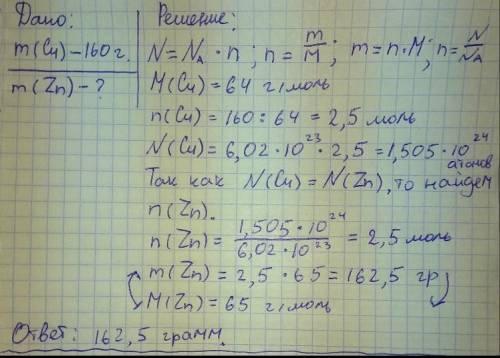 Дано:
m(Cu) – 160 г.
m(Zn) – ?
Решение:
N = N_A · n ; n = m/M ; m = n·M ; n = N/N_A
M(Cu) = 64 г/моль
n(Cu) = 160 : 64 = 2,5 моль
N(Cu) = 6,02 · 10²³ · 2,5 = 1,505 · 10²⁴ атомов
Так как N(Cu) = N(Zn), то найдем
n(Zn).
n(Zn) = 1,505 · 10²⁴ / 6,02 · 10²³ = 2,5 моль
m(Zn) = 2,5 · 65 = 162,5 гр
M(Zn) = 65 г/моль
Ответ: 162,5 грамм.